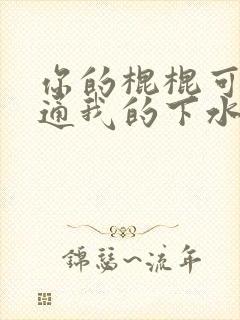 你的棍棍可
通我的下水
锦瑟~流年